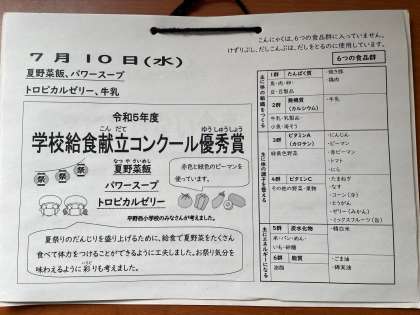 7月10日(水)
夏野菜飯、パワースープ
トロピカルゼリー、牛乳
令和5年度
こん だて
ゆうしゅうしょう
学校給食献立コンクール優秀賞
なつ や さい めし
夏野菜飯
パワースープ
トロピカルゼリー
平野西小学校のみなさんが考えました。
祭
祭
祭
赤色と緑色のピーマンを
使っています。
夏祭りのだんじりを盛り上げるために、給食で夏野菜をたくさん
食べて体力をつけることができるように工夫しました。お祭り気分を
いろど
味わえるように彩りも考えました。
こんにゃくは、6つの食品群に入っていません。
けずりぶし、だしこんぶは、だしをとるのに使用しています。
6つの食品群
主に体の組織をつくる
1群 たんぱく質
魚・肉・卵・
豆・豆製品
・焼き豚
・鶏肉
2群 無機質
(カルシウム)
牛乳・乳製品・
小魚・海そう
・牛乳
主に体の調子を整える
3群 ビタミンA
(カロテン)
緑黄色野菜
・にんじん
・ピーマン
・赤ピーマン
・トマト
・にら
4群 ビタミンC
その他の野菜・果物
・たまねぎ
・なす
・コーン(冷)
・とうがん
・ゼリー(みかん)
・ミックスフルーツ(缶)
主にエネルギーになる
5群 炭水化物
米・パン・めん・
いも・砂糖
・精白米
6群 脂質
油脂
・ごま油
・綿実油